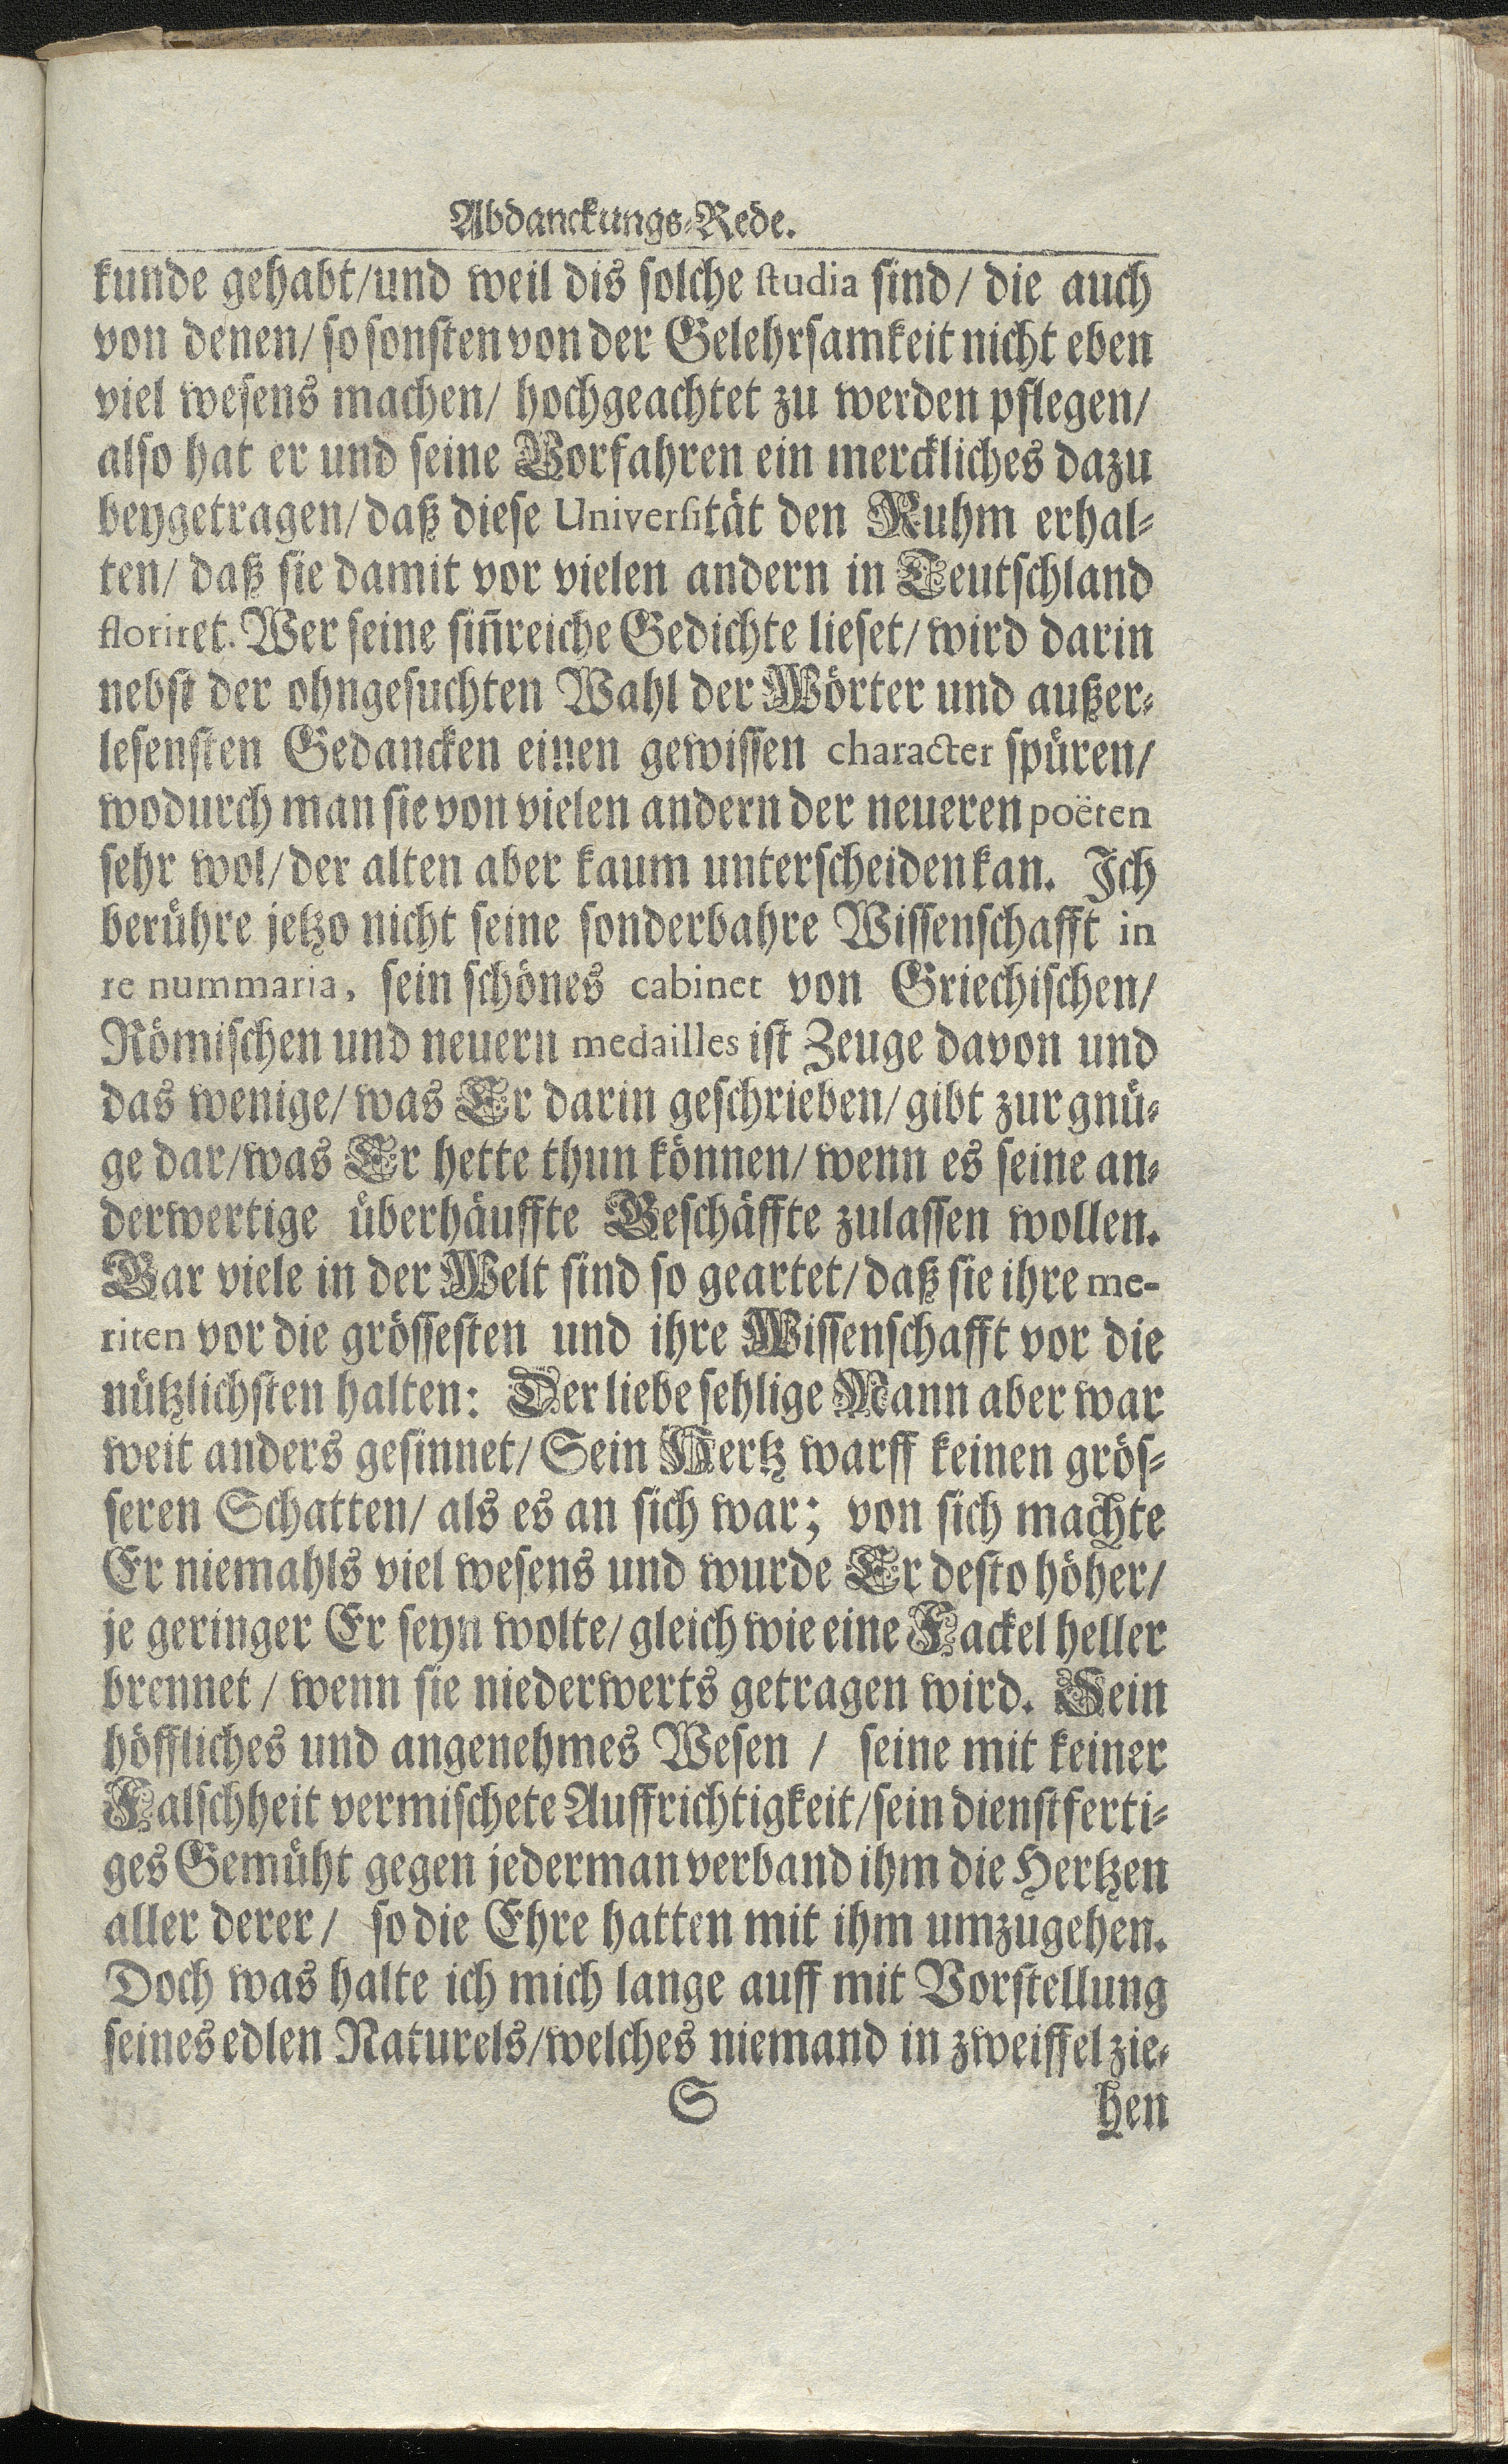 Abdanckungs-Rede.
kunde gehabt/und weil dis solche studia sind/ die auch
von denen/ so sonsten von der Gelehrsamkeit nicht eben
viel wesens machen/ hochgeachtet zu werden pflegen/
also hat er und seine Vorfahren ein merckliches dazu
beygetragen/ daß diese Universität den Ruhm erhal-
ten/ daß sie damit vor vielen andern in Teutschland
floriret. Wer seine siñreiche Gedichte lieset/ wird darin
nebst der ohngesuchten Wahl der Wörter und außer-
lesensten Gedancken einen gewissen character spüren/
wodurch man sie von vielen andern der neueren poëten
sehr wol/ der alten aber kaum unterscheiden kan. Ich
berühre jetzo nicht seine sonderbahre Wissenschafft in
re nummaria, sein schönes cabinet von Griechischen/
Römischen und neuern medailles ist Zeuge davon und
das wenige/ was Er darin geschrieben/ gibt zur gnü-
ge dar/was Er hette thun können/ wenn es seine an-
derwertige überhäuffte Geschäffte zulassen wollen.
Gar viele in der Welt sind so geartet/ daß sie ihre me-
riten vor die grössesten und ihre Wissenschafft vor die
nützlichsten halten: Der liebe sehlige Mann aber war
weit anders gesinnet/ Sein Hertz warff keinen grös-
seren Schatten/ als es an sich war; von sich machte
Er niemahls viel wesens und wurde Er desto höher/
je geringer Er seyn wolte/ gleich wie eine Fackel heller
brennet / wenn sie niederwerts getragen wird. Sein
höffliches und angenehmes Wesen / seine mit keiner
Falschheit vermischete Auffrichtigkeit/ sein dienstferti-
ges Gemüht gegen jederman verband ihm die Hertzen
aller derer/ so die Ehre hatten mit ihm umzugehen.
Doch was halte ich mich lange auff mit Vorstellung
seines edlen Naturels/welches niemand in zweiffel zie-
S hen